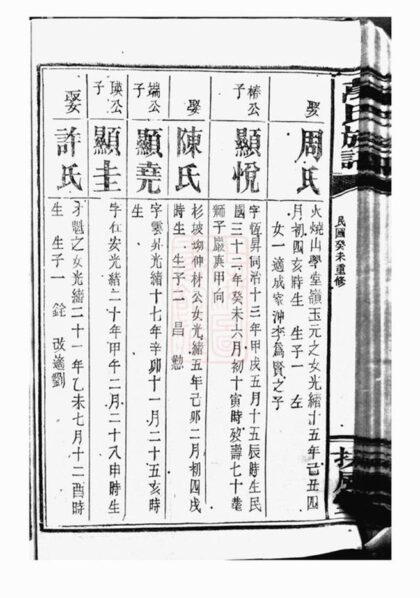 氏族譜
民國癸未重修
娶
周氏
火燒山學堂嶺玉元之女光緒十五年己丑四
月初四亥時生 生子一 左
女一適成家沖李爲賢之子
椿公
子
顯悅
字恆昇同治十三年甲戌五月十五辰時生民
國三十二年癸未六月初十寅時歿壽七十葬
獅子巖巽甲向
娶
陳氏
杉坡坳仲材公女光緒五年己卯二月初四戌
時生 生子二 昌
端公
子
顯堯
字雲外光緒十七年辛卯十一月二十五亥時
生
瑛公
子
顯圭
字在安光緒二十年甲午二月二十八申時生
娶
許氏
才魁之女光緒二十一年乙未七月十二酉時
生 生子一 銓 改適劉